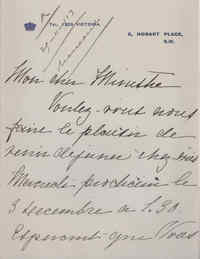 TEL. 1223 VICTORIA.
5, HOBART PLACE,
S.W.
Mon cher Ministre
Voulez-vous nous
faire le plaisir de
venir dejeuner chez
Mercredi prochain le
3 decembre a 1.30.
Esperant que Vous